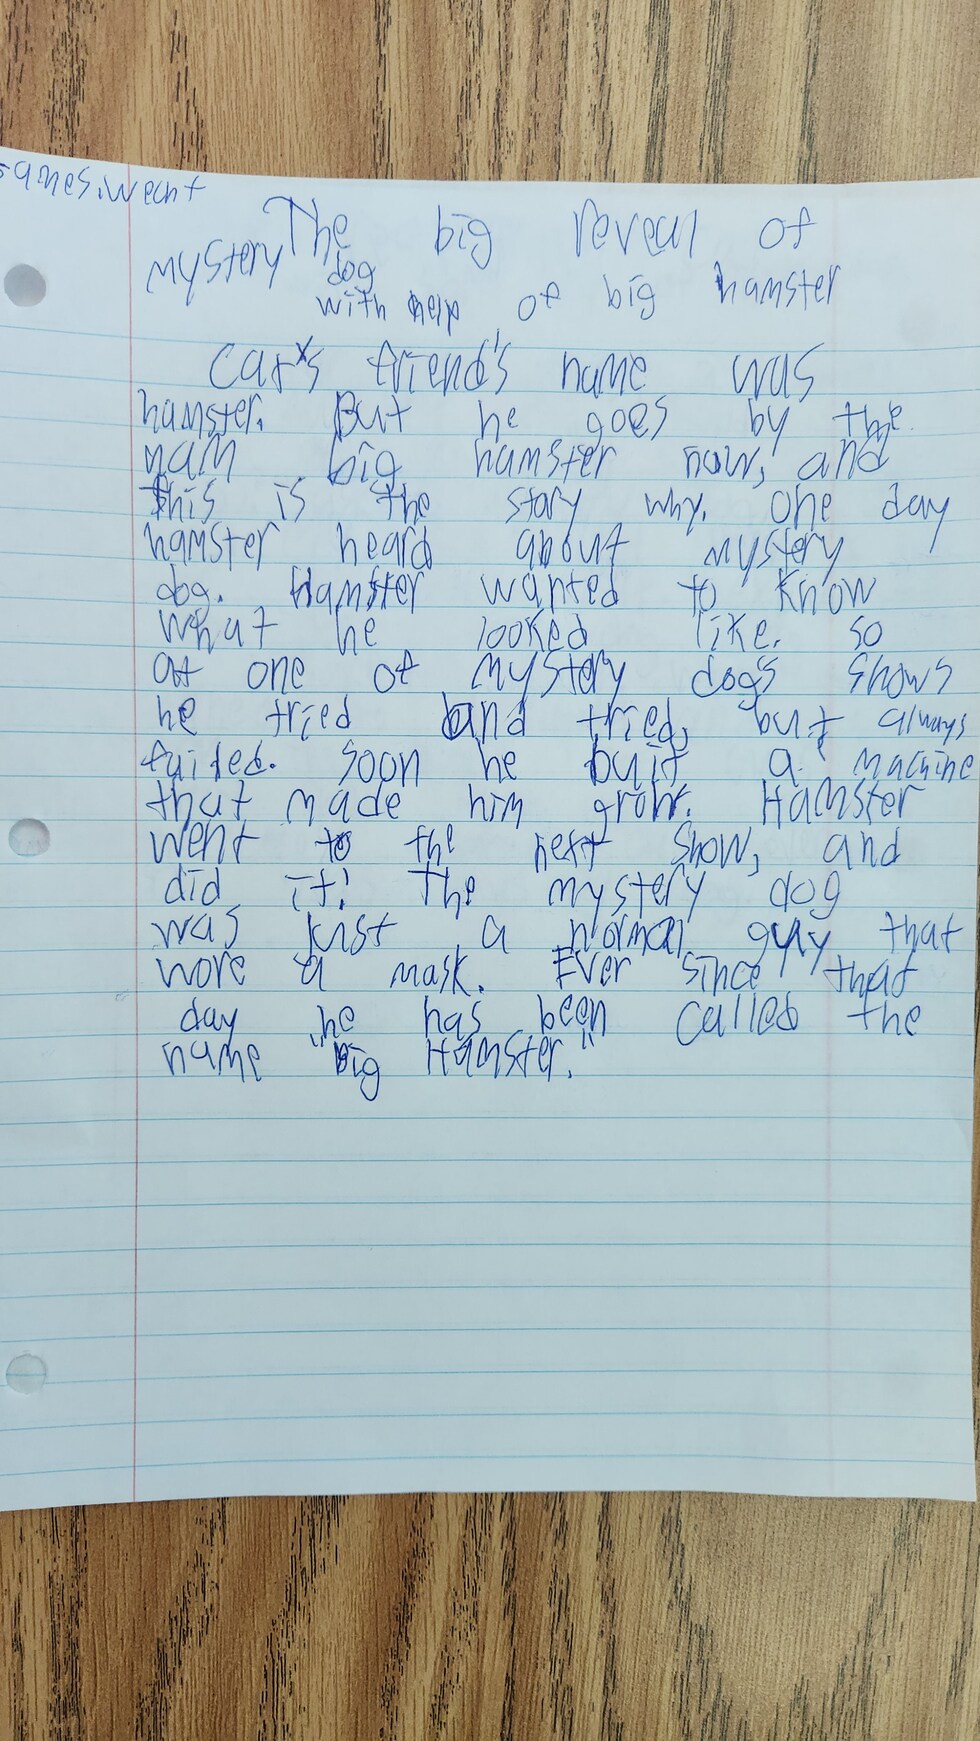 The big reveal of
mystery dog
with help of big hamster
Cat's friend's name was
hamster. But he goes by the
nam big hamster now, and
this is the story why. One day
hamster heard about mystery
dog. Hamster wanted to know
what he looked like. so
at one of mystery dogs shows
he tried and tried, but always
failed. Soon he built a machine
that made him grow. Hamster
went to the next show, and
did it! The mystery dog
was just a normal guy that
wore a mask. Ever since that
day he has been called the
name "Big Hamster."